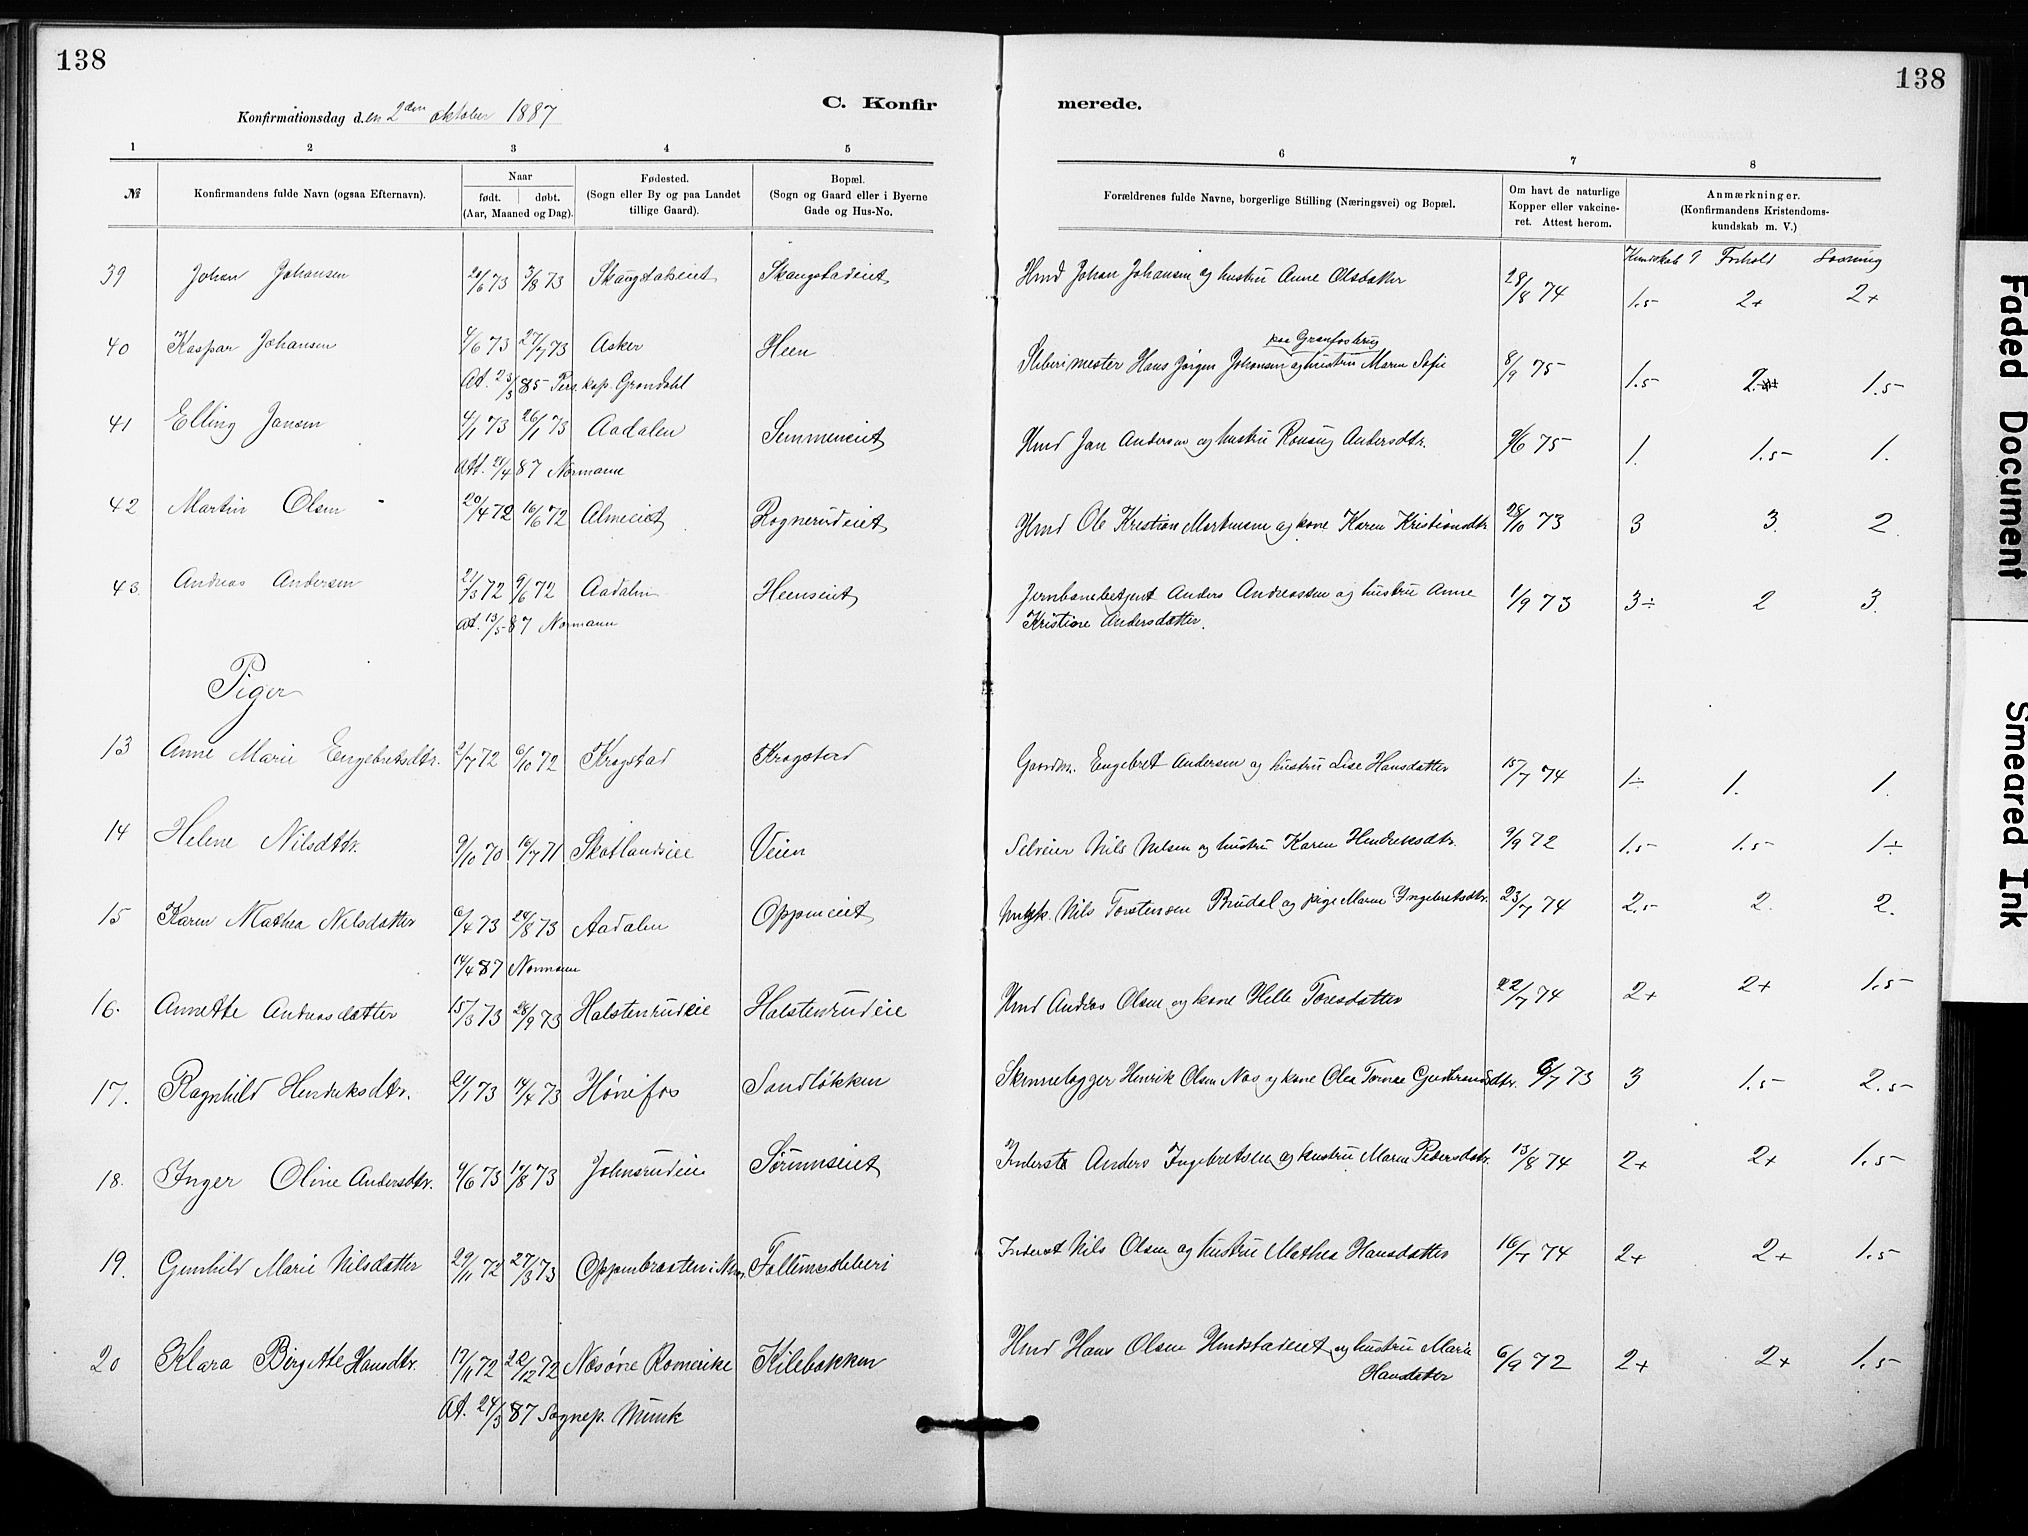 138
138
C. Konfir
merede.
Konfirmationsdag d.en 2den oktober 1887
1 2 3 4 5 6 7 8
№ Konfirmandens fulde Navn (ogsaa Efternavn). Naar født. døbt. (Aar, Maaned og Dag). Fødested. (Sogn eller By og paa Landet tillige Gaard). Bopæl. (Sogn og Gaard eller i Byerne Gade og Hus-No. Forældrenes fulde Navne, borgerlige Stilling (Næringsvei) og Bopæl. Om havt de naturlige Kopper eller vakcineret. Attest herom. Anmærkninger. (Konfirmandens Kristendomskundskab m. V.)
Kundskab Forhold
39 Johan Johansen 20/6 73 3/8 73 Skaugstadeiet Hmd Johan Johansen og hustru Anne Olsdatter 28/8 74 1.5 2+ 2+
paa Granfosbrug
40 Kaspar Johansen 4/6 73 27/7 73 Asker Heen Sliberimester Hans Jørgen Johansen og hustru Maren Sofie 8/9 75 1.5 2 1.5
At. 23/3 85 Pers. kap. Grøndahl
41 Elling Jansen 4/1 73 26/1 73 Aadalen Semmeneiet Hmd Jan Andersen og hustru Andersdtr. 9/6 75 1. 1.5 1.
Att. 21/4 87 Normann
42 Martin Olsen 20/4 72 16/6 72 Almeiet Rognerudeiet Hmd Ole Kristian Martinsen og kone Karen Kristiansdtr 28/10 73 3 3. 2.
43. Andreas Andersen 21/3 72 9/6 72 Aadalen Heenseiet Jernbanebetjent Anders Andreassen og hustru Anne 1/9 73 3÷ 2 3.
At. 13/5 87 Normann Kristine Andersdatter.
Piger
13 Anne Marie Engebretsdtr. 2/7 72 6/10 72 Krogstad Krogstad Gaardm. Engebret Andersen og hustru Lise Hansdatter 15/7 74 1÷ 1. 1.
14 Helene Nilsdtr. 9/10 70 16/7 71 Skotlandseie Veien Selveier Nils Nilsen og hustru Karen Hendriksdtr. 9/9 72 1.5 1.5 1÷
15 Karen Mathea Nilsdatter 6/4 73 24/8 73 Aadalen Oppeneiet Ungk. Nils Torstensen Brudal og pige Maren Yngebretsdtr. 23/7 74 2.5 2. 2.
14/4 87 Normann
16. Annette Andreasdatter 15/3 73 28/9 73 Halstenrudeie Halstenrudeie Hmd Andreas Olsen og kone Helle Toresdatter 22/7 74 2+ 2+ 1.5
17. Ragnhild Hendriksdtr. 21/1 73 14/4 73 Hønefos Sandløkken Skinnelægger Henrik Olsen Næs og kone Olea Gudbrandsdtr. 6/7 73 3 1.5 2.5
18. Inger Oline Andersdtr. 9/6 73 14/8 73 Johnsrudeie Sørumseiet Inderste Anders Ingebretsen og hustru Maren Pedersdtr. 13/8 74 2+ 2+ 1.5
19. Gunhild Marie Nilsdatter 29/11 72 27/3 73 Oppenbraaten i Follumsliberi Inderst Nils Olsen og hustru Mathea Hansdatter 16/7 74 2+ 2+ 1.5
20 Klara Birgitte Hansdtr. 17/11 72 22/12 72 Næsøne Romerike Kilebakken Hmd Hans Olsen og hustru Marie 6/9 72 2+ 2+ 1.5
Hansdatter
At. 24/3 87 Sognep. Munk
Faded Document
Smeared Ink